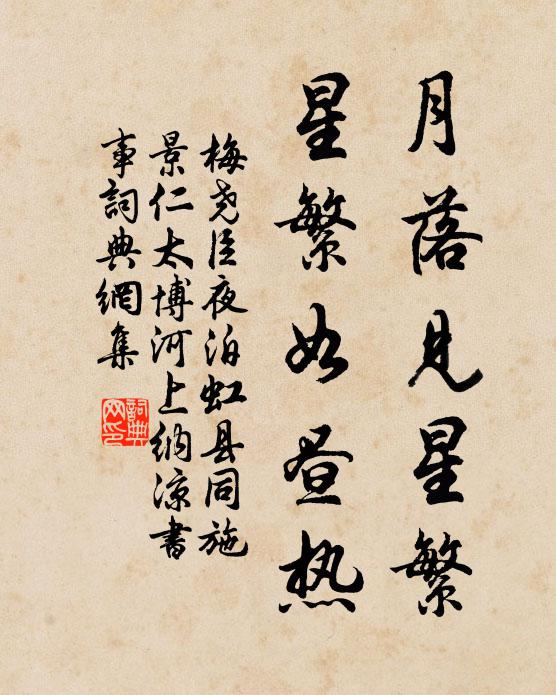 月落见星繁
星繁如昼热
梅尧臣夜泊虹县同施
景仁太博河上纳凉书
事詞典網集
詞典
网印